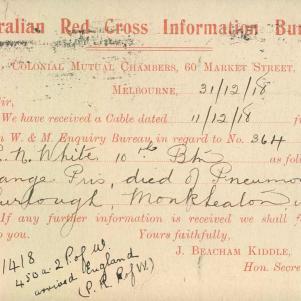 ralian Red Cross Information Bur
COLONIAL MUTUAL CHAMBERS, 60 MARKET STREET,
MELBOURNE, 31/12/18
ir,
We have received a Cable dated 11/12/18
n W. & M. Enquiry Bureau in regard to No. 364
N. White, 10th Btn as follo
ange Pris, died of Pneumo
urlough, Monkseaton
If any further information is received we shall f
o you. Yours faithfully,
J. BEACHAM KIDDLE,
Hon. Secre
1/4/18
450 a 2 P. of W.
arrived England
(P. R. of W.)